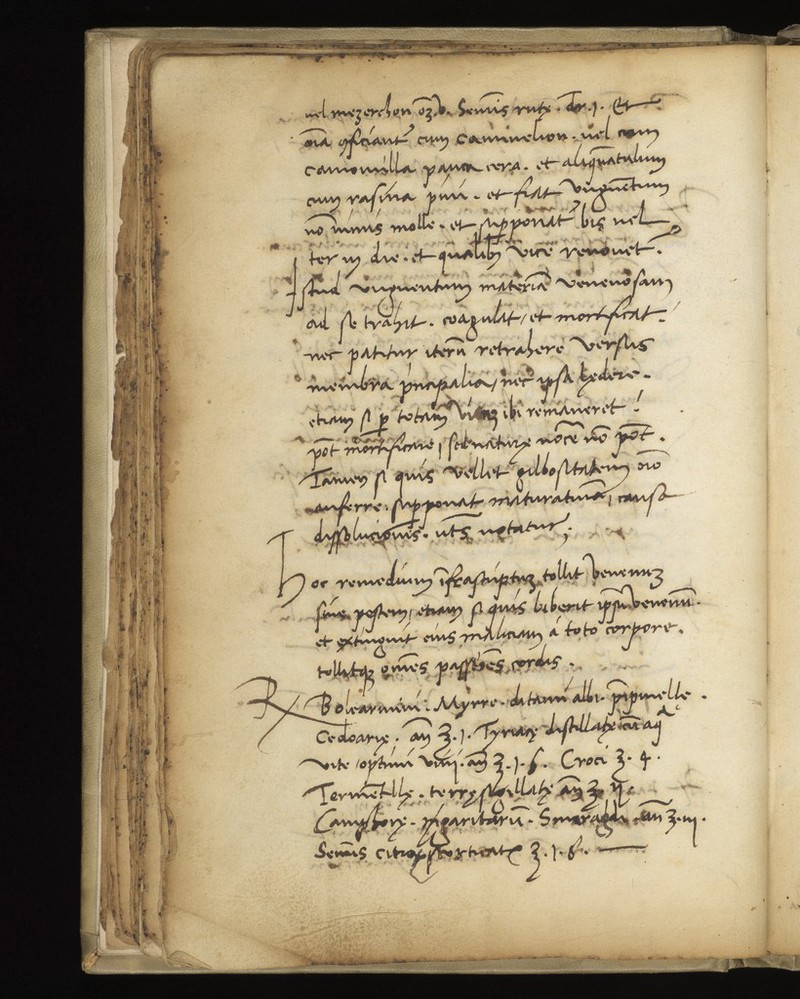 uel mezerehon oʒ.v. Semīs rutę. Dr.j. Et
oīa cōficiantᵣ cum caminelion. uel cum
camomilla pauca cera. et aliqͣntulum
cum rasina pini. et fiat unguētum
nō nimis molle. et supponatᵣ bis uel
ter in die. et qualibꝫ vice renouetᵣ.
Istud unguentum materiā venenosam
ad se trahit. coagulat, et mortificat.
nec patitur iterū retrahere versus
membra pͥncipalia, nec ipsa lędere.
etiam si ꝑ totam ibi remaneret!
pōt mortificare, sed naturę nocē nō pōt.
Tamen si quis vellet gilbositatem oīo
aufferre. supponat maturatiuā, causa
dissolucionis. notatur;
Hoc remedium īfrascriptuꝫ tollit venenuꝫ
siue pestem, etiam si quis biberit ipsū venenū.
et extinguit eius maliciam à toto corpore.
tollitqꝫ omēs passiōēs cordis.
℞ Boliarmeni. Myrre. ditami albi. pīpinelle.
Cedoarię. an̄ ʒ.j. Tyriacę distillatę cū aqͣ
vite, optimi vini. an̄ ʒ.j.ß. Croci ʒ.4.
Tormētillę. terrę sigillatę an̄ ʒ.ij.
Camphorę. Smaragdi. an̄ ʒ.iij.
Semīs citri ʒ.j.ß.